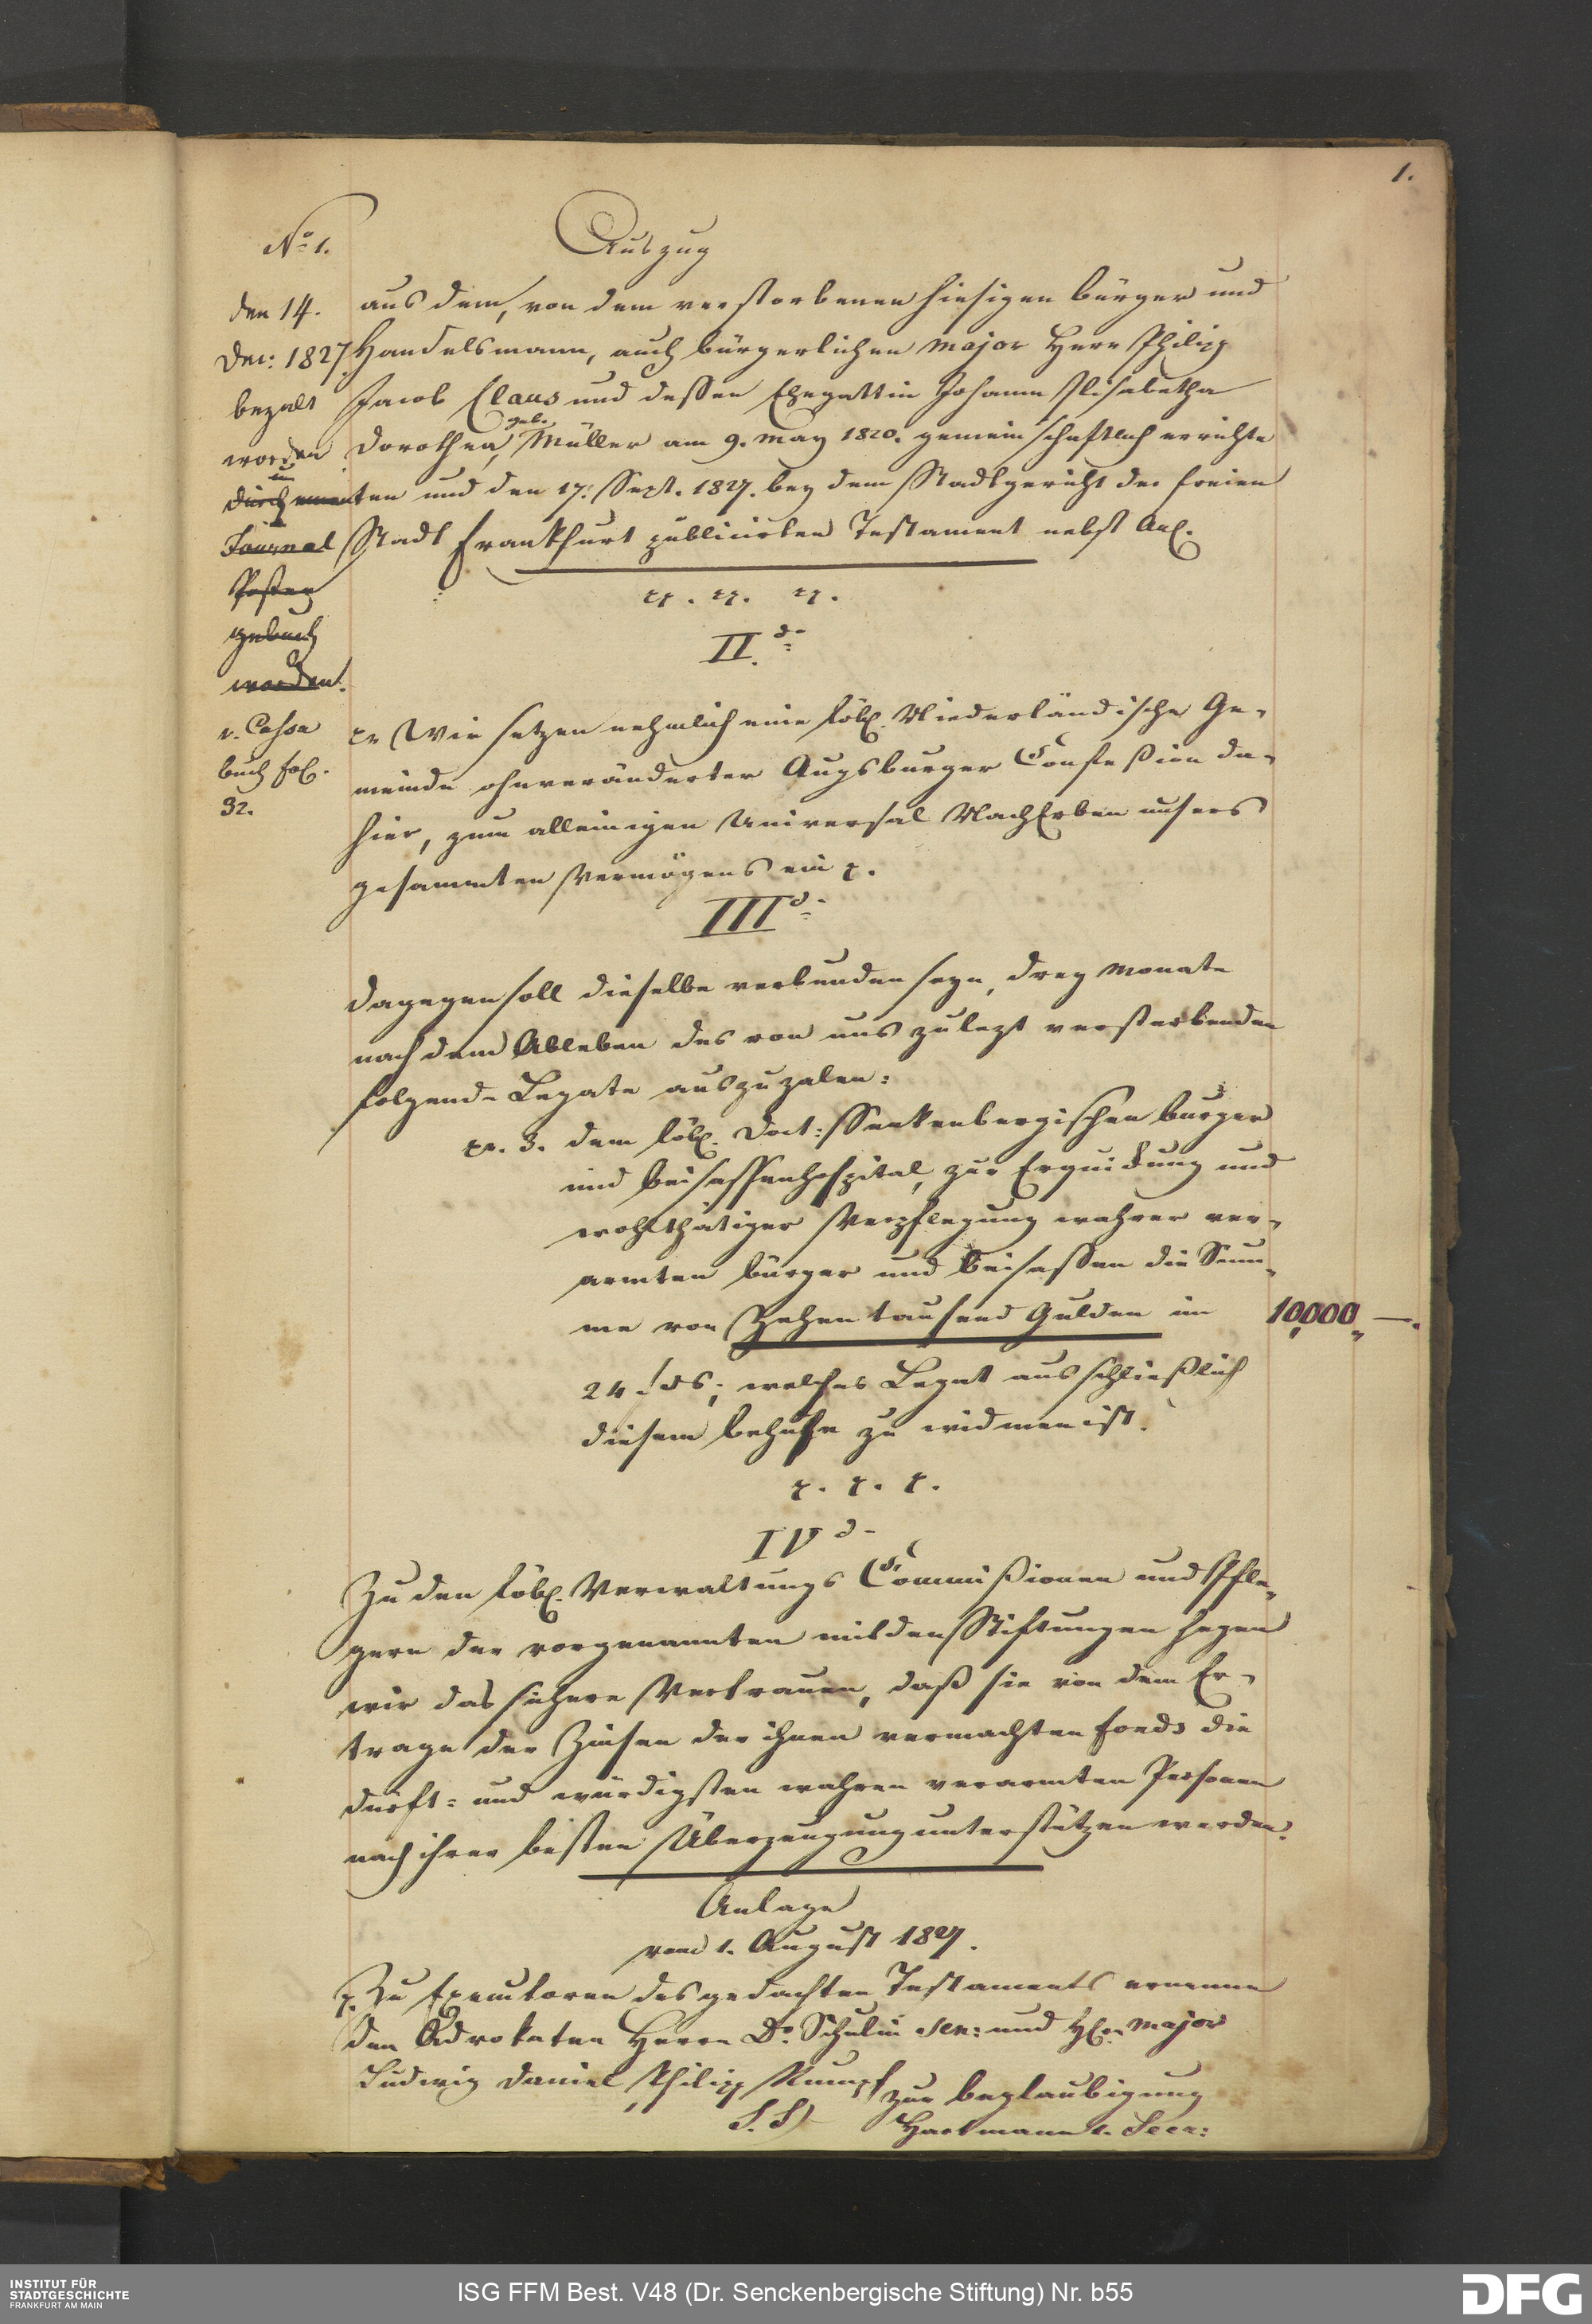 1.
No. 1.
Auszug
den 14.
Dec: 1827
bezalt
worden
u
durch einen
Journal
Posten
gebuch
worden.
v. Cassa
buch fol.
32.
aus dem, von dem verstorbenen hiesigen Bürger und
Handelsmann, auch bürgerlichen Major Herrn Philipp
Jacob Claus und dessen Ehegattin Johanna Elisabetha
geb.
Dorothea, Müller am 9. May 1820. gemeinschaftlich errichte
ten und den 17. Sept. 1827. bey dem Stadtgericht der freien
Stadt Frankfurt publicirten Testament nebst Anl.
pp. pp. pp.
II.do
pp Wir setzen nehmlich eine löbl. Niederländische Ge-
meinde ohnveränderter Augsburger Confeßion da-
hier, zum alleinigen Universal NachErben unsers
gesammten Vermögens ein p.
IIIdo
Dagegen soll dieselbe verbunden seyn, drey Monate
nach dem Ableben des von uns zulezt versterbenden
folgende Legate auszuzalen:
pp. 3. dem löbl. Doct: Senkenbergischen Bürger
und Beisassenhospital, zur Erquickung und
wohlthätiger Verpflegung wahrer ver-
armten Bürger und Beisassen die Sum-
me von Zehentausend Gulden im
10,000 „ —.
24 f ds; welches Legat ausschließlich
diesem Behufe zu widmen ist.
p. p. p.
IVdo
Zu den löbl. Verwaltungs Commißionen und Pfle-
gern der vorgenannten milden Stiftungen hegen
wir das sichere Vertrauen, daß sie von dem Er-
trage der Zinsen der ihnen vermachten Fonds die
dürft- und würdigsten wahren verarmten Personen
nach ihrer besten Überzeugung unterstützen werden.
Anlage
vom 1. August 1827.
p. Zu Executoren des gedachten Testaments ernenne
den Advokaten Herrn Dr. Schulin sen: und Hrn. Major
Ludwig Daniel Philipp Rumpf
zur Beglaubigung
L.S.
Hartmann I. Secr:
INSTITUT FÜR
STADTGESCHICHTE
FRANKFURT AM MAIN
ISG FFM Best. V48 (Dr. Senckenbergische Stiftung) Nr. b55
DFG